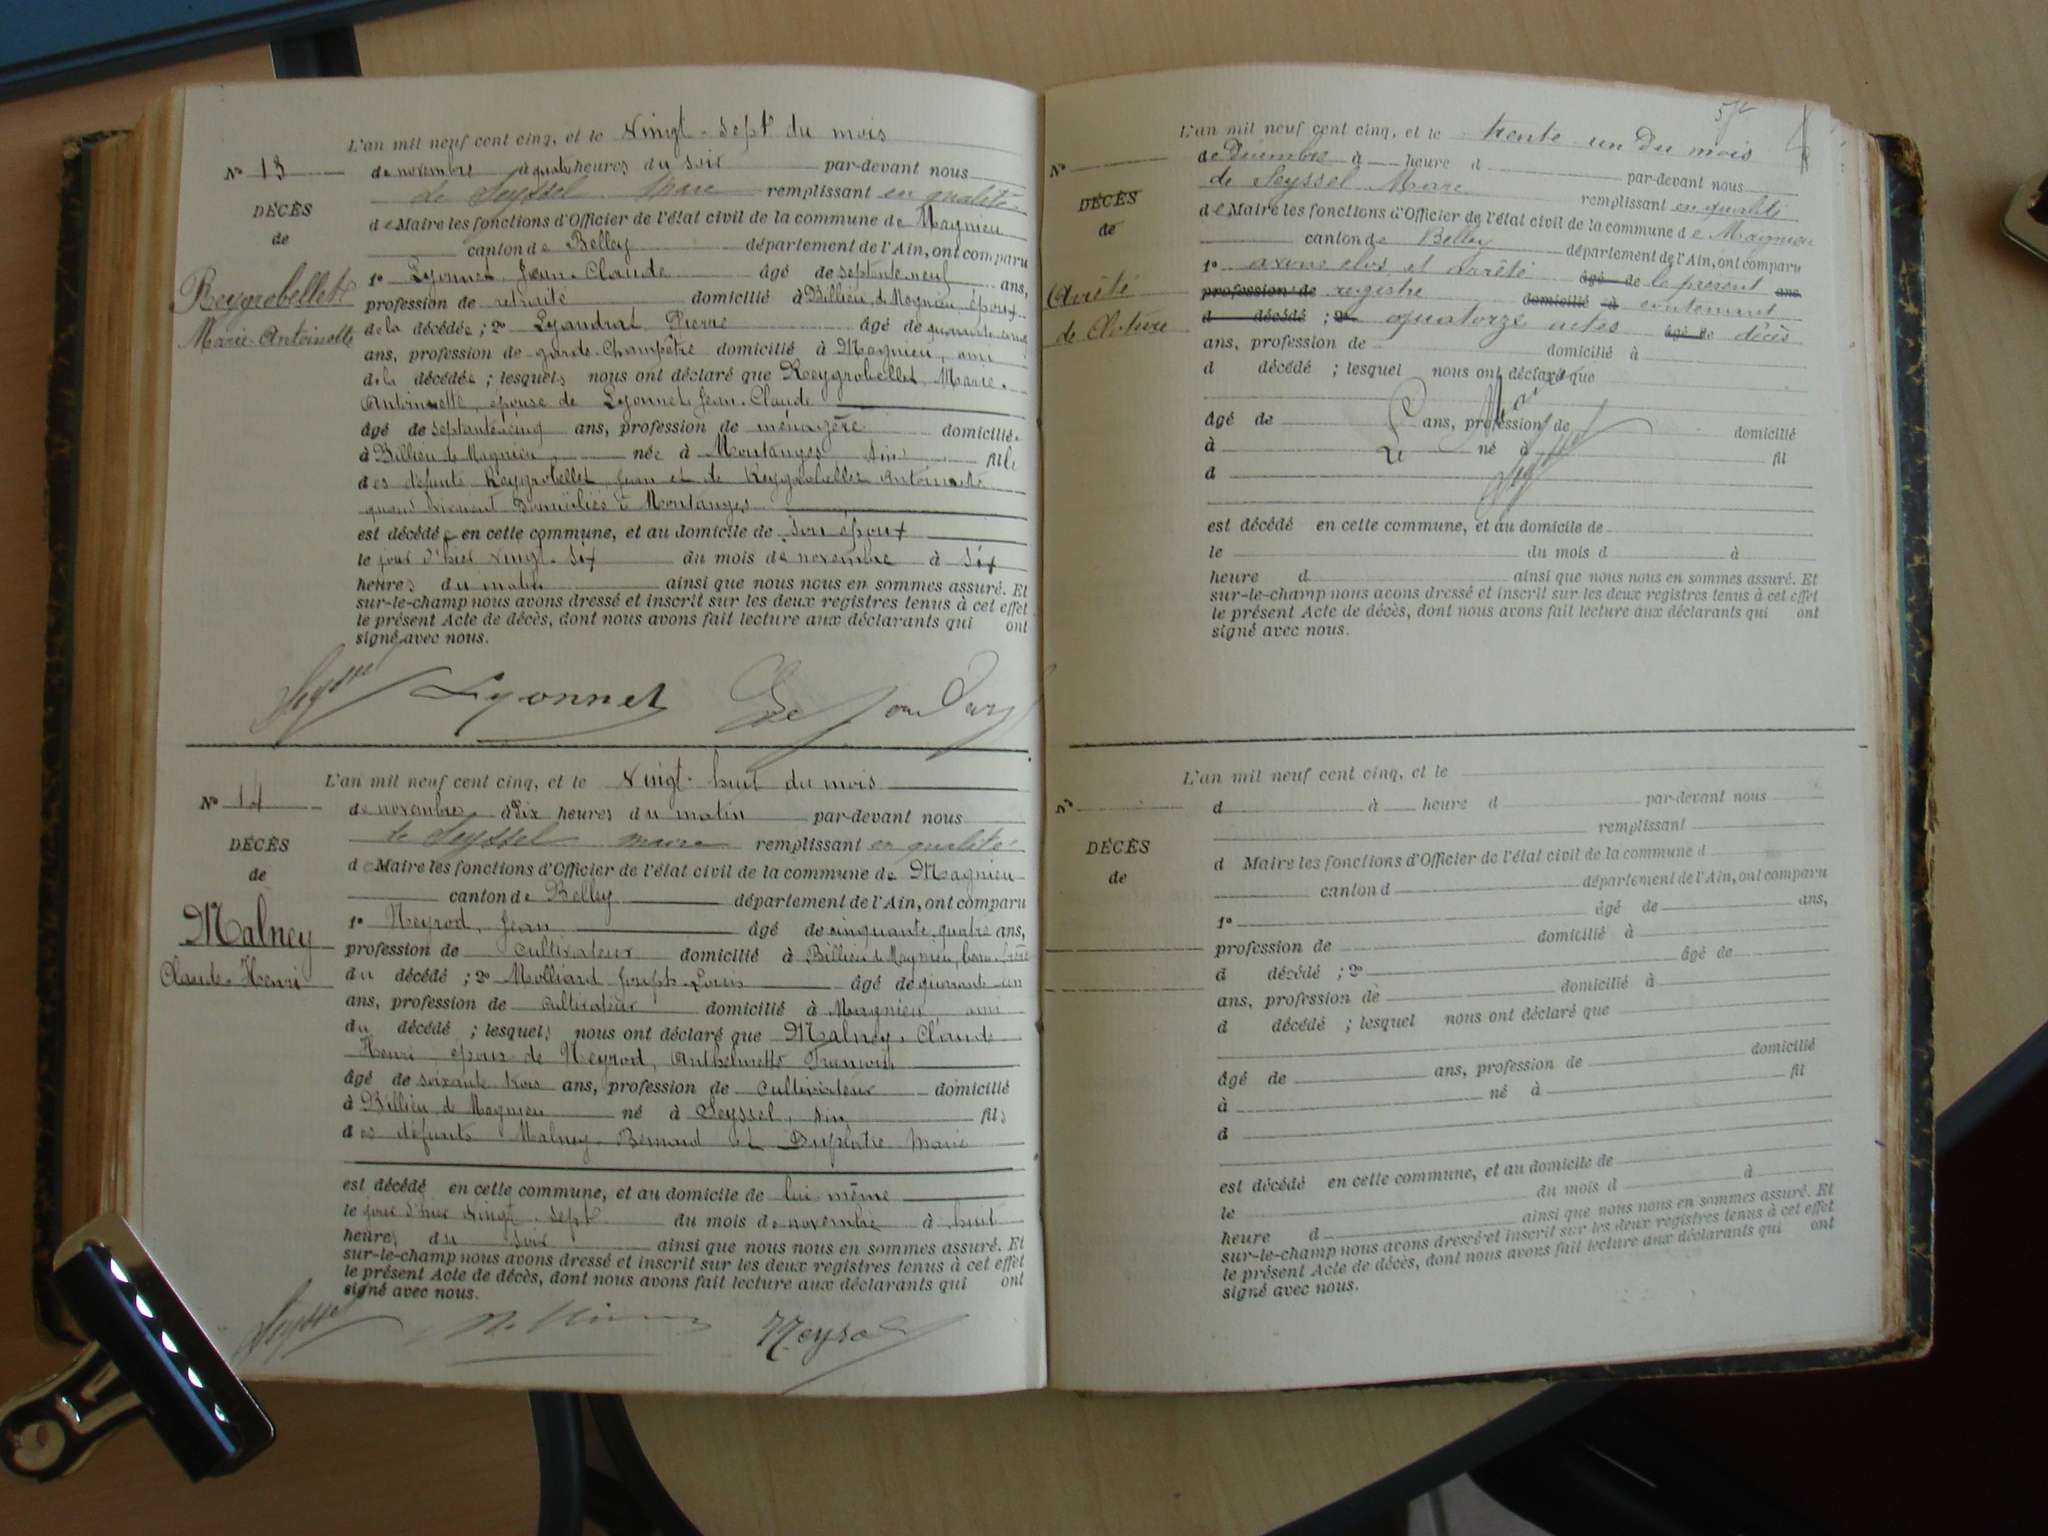 L'an mil neuf cent cinq, et le Vingt-sept du mois
N° 13 de novembre à quatre heures du soir par-devant nous
de Seyssel Marc remplissant en qualité
DÉCÈS
de Maire les fonctions d'Officier de l'état civil de la commune de Magnieu
de
canton de Belley département de l'Ain, ont comparu
1° Lyonnet, Jean-Claude âgé de septante neuf ans,
Reygrobellet
profession de retraité domicilié à Billieu de Magnieu, époux
Marie-Antoinette
de la décédée ; 2° Lyandrat Pierre âgé de quarante cinq
ans, profession de garde-Champêtre domicilié à Magnieu, ami
de la décédée ; lesquels nous ont déclaré que Reygrobellet Marie-
Antoinette, épouse de Lyonnet Jean-Claude
âgé de septante cinq ans, profession de ménagère domiciliée
à Billieu de Magnieu née à Montanges Ain fille
des défunts Reygrobellet Jean et de Reygrobellet Antoinette
quand vivaient Domiciliés à Montanges
est décédée en cette commune, et au domicile de son époux
le jour d'hier vingt-six du mois de novembre à six
heures du matin ainsi que nous nous en sommes assuré. Et
sur-le-champ nous avons dressé et inscrit sur les deux registres tenus à cet effet
le présent Acte de décès, dont nous avons fait lecture aux déclarants qui ont
signé avec nous.
Seyssel Lyonnet
L'an mil neuf cent cinq, et le Vingt-huit du mois
N° 14 de novembre à Dix heures du matin par-devant nous
de Seyssel marc remplissant en qualité
DÉCÈS
de Maire les fonctions d'Officier de l'état civil de la commune de Magnieu
de
canton de Belley département de l'Ain, ont comparu
1° Neyrod, Jean âgé de cinquante quatre ans,
Malney
profession de cultivateur domicilié à Billieu de Magnieu, beau-frère
Claude-Henri
du décédé ; 2° Molliard Joseph-Louis âgé de quarante un
ans, profession de cultivateur domicilié à Magnieu, ami
du décédé ; lesquels nous ont déclaré que Malney, Claude
Henri, époux de Neyrod, Anthelmette
âgé de soixante trois ans, profession de cultivateur domicilié
à Billieu de Magnieu né à Seyssel, Ain fils
des défunts Malney Bernard et Marie
est décédé en cette commune, et au domicile de lui-même
le jour d'hier vingt-sept du mois de novembre à huit
heures du soir ainsi que nous nous en sommes assuré. Et
sur-le-champ nous avons dressé et inscrit sur les deux registres tenus à cet effet
le présent Acte de décès, dont nous avons fait lecture aux déclarants qui ont
signé avec nous.
Seyssel Neyrod
L'an mil neuf cent cinq, et le trente-un Du mois
N° de Décembre à heure d par-devant nous
de Seyssel Marc remplissant en qualité
DÉCÈS
de Maire les fonctions d'Officier de l'état civil de la commune de Magnieu
de
canton de Belley département de l'Ain, ont comparu
1° avons clos et arrêté âgé de le présent ans
Arrêté
profession de registre domicilié à contenant
de Clôture
d décédé ; 2° quatorze actes âgé de décès
ans, profession de domicilié à
d décédé ; lesquel nous ont déclaré que
âgé de ans, profession de domicilié
à né à fil
d
Le Maire
Seyssel
est décédé en cette commune, et au domicile de
le du mois d à
heure d ainsi que nous nous en sommes assuré. Et
sur-le-champ nous avons dressé et inscrit sur les deux registres tenus à cet effet
le présent Acte de décès, dont nous avons fait lecture aux déclarants qui ont
signé avec nous.
L'an mil neuf cent cinq, et le
N° d à heure d par-devant nous
remplissant
DÉCÈS
d Maire les fonctions d'Officier de l'état civil de la commune d
de
canton d département de l'Ain, ont comparu
1° âgé de ans,
profession de domicilié à
d décédé ; 2° âgé de
ans, profession de domicilié à
d décédé ; lesquel nous ont déclaré que
âgé de ans, profession de domicilié
à né à fil
d
est décédé en cette commune, et au domicile de
le du mois d à
heure d ainsi que nous nous en sommes assuré. Et
sur-le-champ nous avons dressé et inscrit sur les deux registres tenus à cet effet
le présent Acte de décès, dont nous avons fait lecture aux déclarants qui ont
signé avec nous.